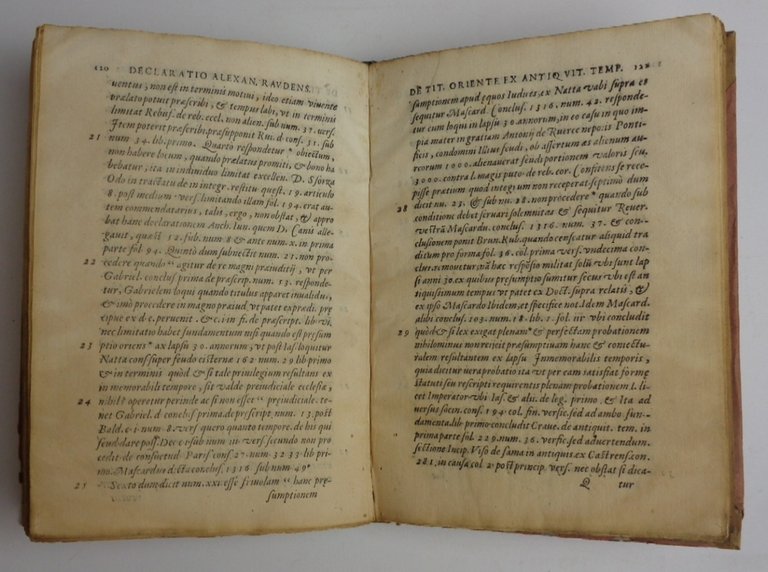 120 DECLARATIO ALEXAN. RAVDENS.
uentus, non est in termini motius, ideo etiam viuente
prælato potuit præscribi, & tempus labi, vt in termini
limitat Rebuf. de reb. eccl. non alien. sub num. 37. vers.
Item poterit præscribi, præsupponit Rui. d. cons. 31. sub
21 num. 34. lib. primo. Quarto respondetur * obiectum,
non habere locum, quando prælatus promisit, & bono ha
bebatur, ita in indiuiduo limitat excellen. D. Sforza
Odo in tractatu de in integr. restitu quæst. 19. articulo
8. post medium vers. limitando illam fol. 194. erat au-
tem commendatarius, talis, ergo, non obstat, & appro
bat hanc declarationem Arch. Iun. quem D. Canis alle
gauit, quæst 12. sub. num. 8 & ante num. x. in prima
parte fol 94. Quinto dum subnectit num. 21. non pro-
22 cedere quando agitur de re magni præiuditij, vt per
Gabriel. conclus prima de præscript. num. 13. responde-
tur, Gabrielem loqui quando titulus apparet inualidus,
& imò procedere in magno præiud vt patet ex prædi. pr
cipue ex d c. peruenit. & c. 1. in fi. de præscript. lib vi.
nec limitatio habet fundamentum nisi quando est præsum
23 ptio oriens ax lapsu 30. annorum, vt post Ias. loquitur
Natta cons. super feudo cisternæ 162 num. 29 lib primo
& in terminis quòd & si tale priuilegium resultans ex
in memorabili tempore, sit valde preiudiciale ecclesiæ,
24 nihilo operetur perinde ac si non esset præiudiciale. te-
net Gabriel. d conclus prima. de præscript. num. 13. post
Bald. c 1 num. 8. vers quero quanto tempore. de his qui
feud. dare poss. Dec c o sub ium in vers secundo non pro
cedit. de consuetud Pars. cons 27. num. 32 33 lib pri
mo. Mascardus dicta conclus. 1316 sub num 49
25 Sexto dum dicit num. xxi. esse si uolam hanc præ-
sumptionem
DE TIT. ORIENTE EX ANTIQVIT. TEMP. 121
sumptionem apud æquos Iudices, ex Natta vabi supra et
sequitur Mascard. Conclus. 1316. num. 42. responde-
tur eum loqui in lapsu 30 annorum, in eo casu in quo im
pia mater in gratiam Antonij de Ruere nepotis Ponti-
ficis, condomini Illius feudi, ob assertum æs alienum
aureorum 1000. alienauerat feudi portionem valoris scu.
3000. contra l. magis puto de reb. cor. Confitens se rece
pisse prætium quod integrum non receperat. septimo dum
dicit nu. 23. & sub nu. 28. non procedere * quando sub
28 conditioni debet seruari solemnitas & sequitur Reuer.
vestrā Mascardu. Conclus. 1316. num. 37. & con-
clusionem ponit Brun. Rub. quando censeatur aliquid tra
ditum pro forma fol. 36. col. prima vers. vndecima con-
clus. remouetur, nā hæc respisio militat solū vbi sunt lap
si anni 30. ex quibus presumptio sumitur secus vbi est an
tiquissimum tempus vt patet ex Doct. supra relatis, &
ex ipso Mascardo Ibidem, et specifice not. Idem Mascard.
alibi conclus. 103. num. 18. lib. 2. fol. 111 vbi concludit
29 quòd & si lex exigat plenam * & perfectam probationem
nihilominus non reijcit præsumptiuam hanc & coniectu-
ralem resultantem ex lapsu Immemorabilis temporis,
quia dicitur uera probatio ita vt per eam satisfiat formę
statuti seu rescripti requirentis plenam probationem l. li
cet Imperator vbi Ias. & alii. de leg. primo. & Ita ad
uersus socin. cons. 194 col. fin. versic. sed ad ambo fun-
damenta. lib primo concludit Craue. de antiquit. tem. in
prima parte fol. 229. num. 36. versic. sed aduertendum.
sectione Incip. Viso de fama in antiquis. ex Castrens. con.
281. in causa col 2. post princip. vers. nec obstat si dica-
Q tur